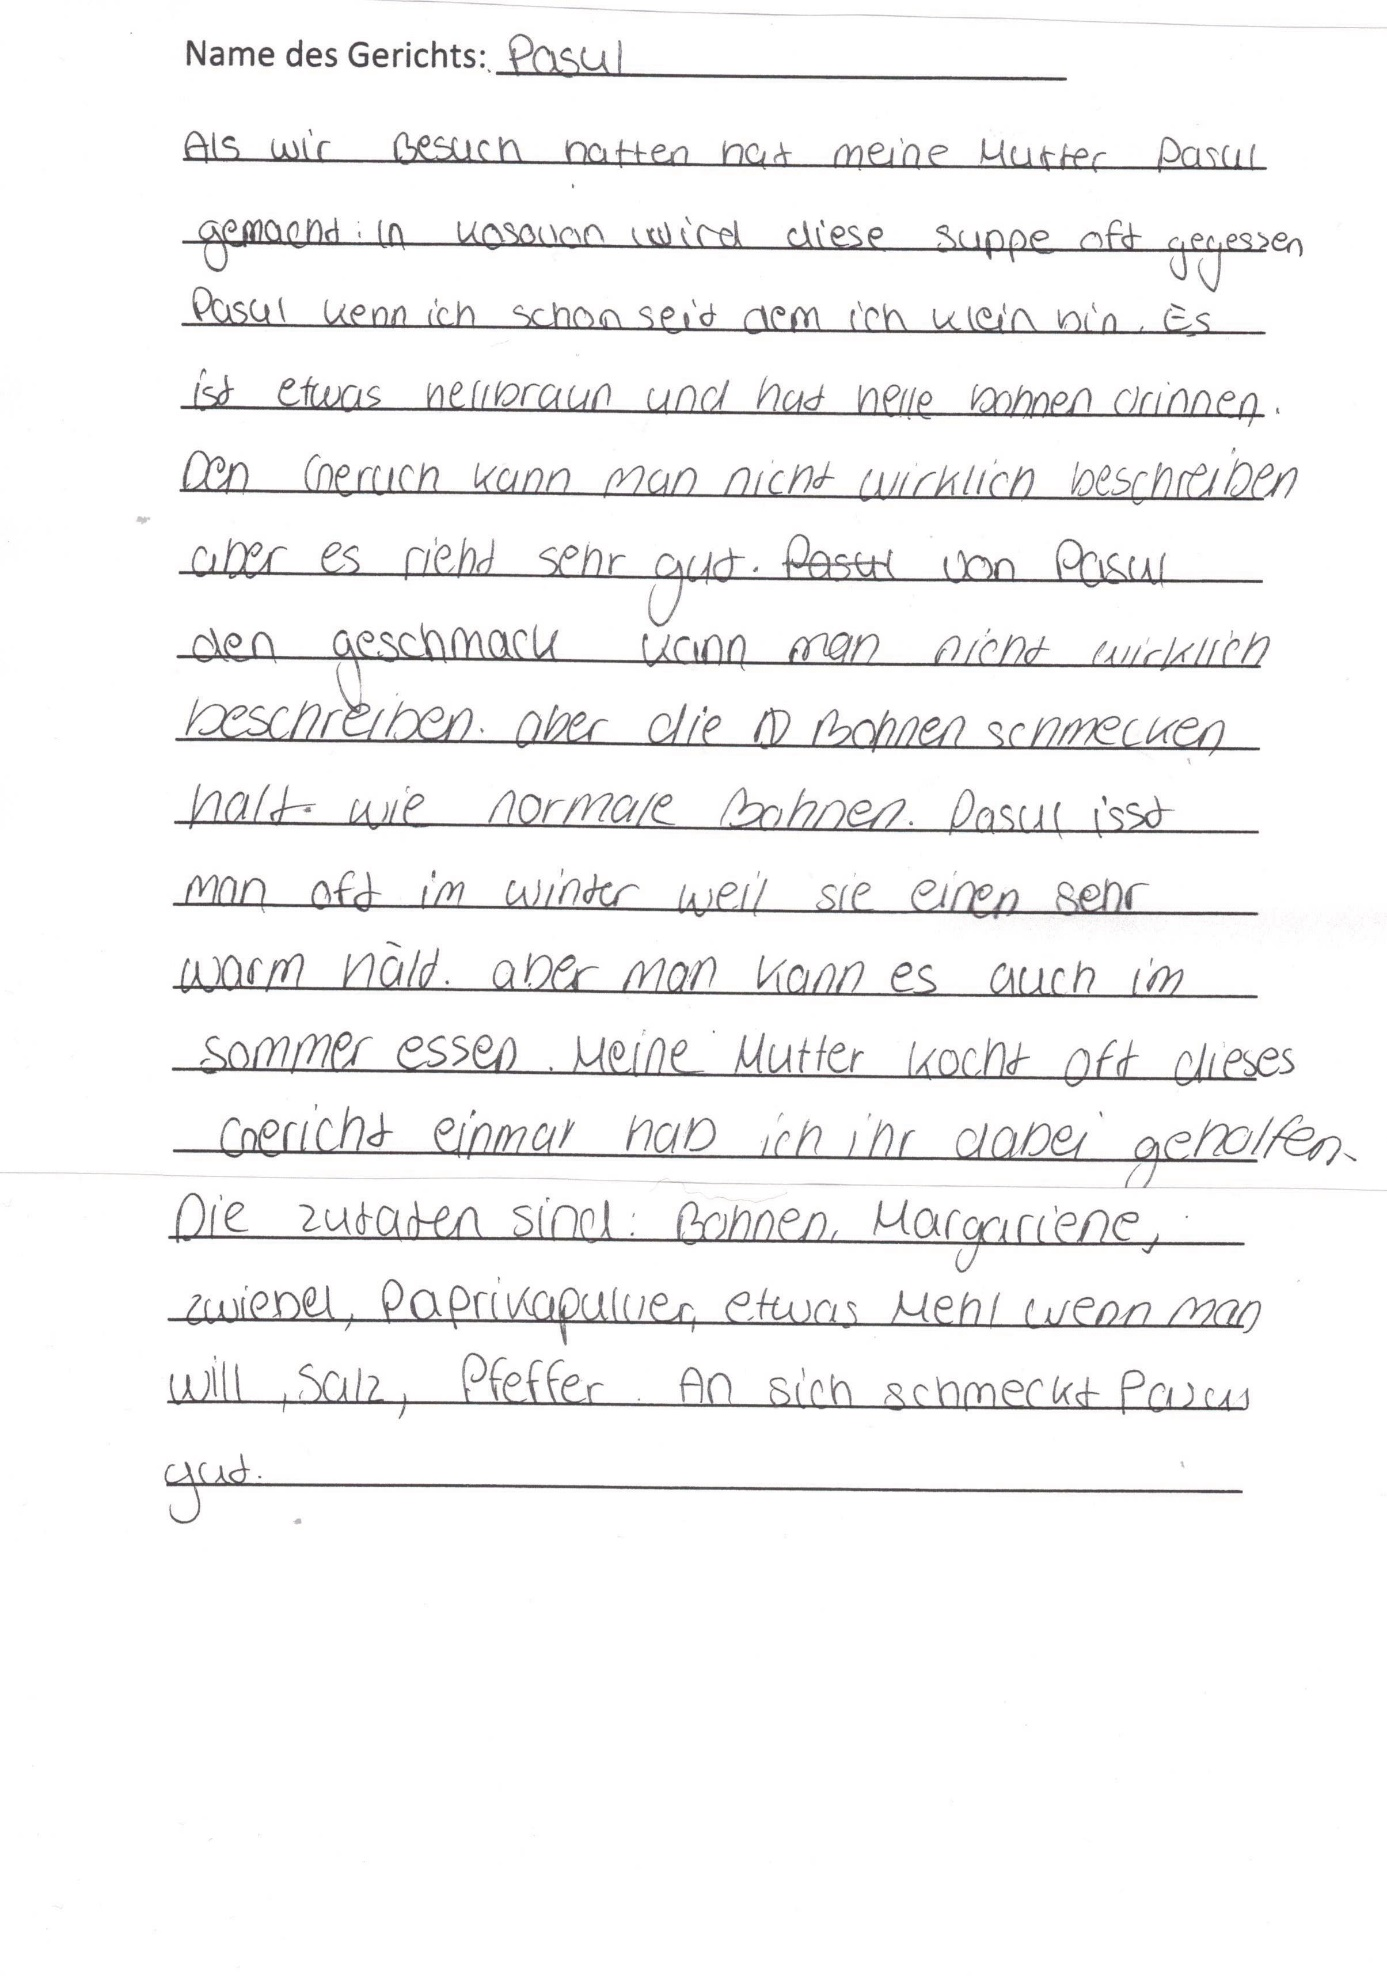 Name des Gerichts: Pasul
Als wir Besuch hatten hat meine Mutter Pasul
gemacht. in kosovan wird diese suppe oft gegessen
Pasul kenn ich schon seit dem ich klein bin. Es
ist etwas hellbraun und hat helle bohnen drinnen.
Den Geruch kann man nicht wirklich beschreiben
aber es rieht sehr gut. Pasul von Pasul
den geschmack kann man nicht wirklich
beschreiben. aber die Bohnen schmecken
halt. wie normale Bohnen. Pasul isst
man oft im winter weil sie einen sehr
warm hält. aber man kann es auch im
sommer essen. Meine Mutter kocht oft dieses
Gericht einmal hab ich ihr dabei geholfen.
Die zutaten sind: Bohnen, Margariene,
zwiebel, Paprikapulver, etwas Mehl wenn man
will, Salz, Pfeffer. An sich schmeckt Pasul
gut.